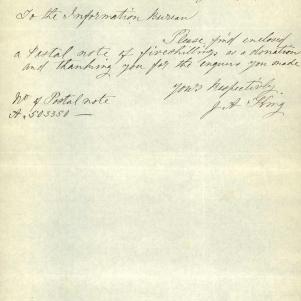 To the Information Bureau
Please find enclosed
a Postal note of five shillings as a donation
and thanking you for the enquiry you made
yours Respectively
J. A. King
No of Postal note
A, 503350 —